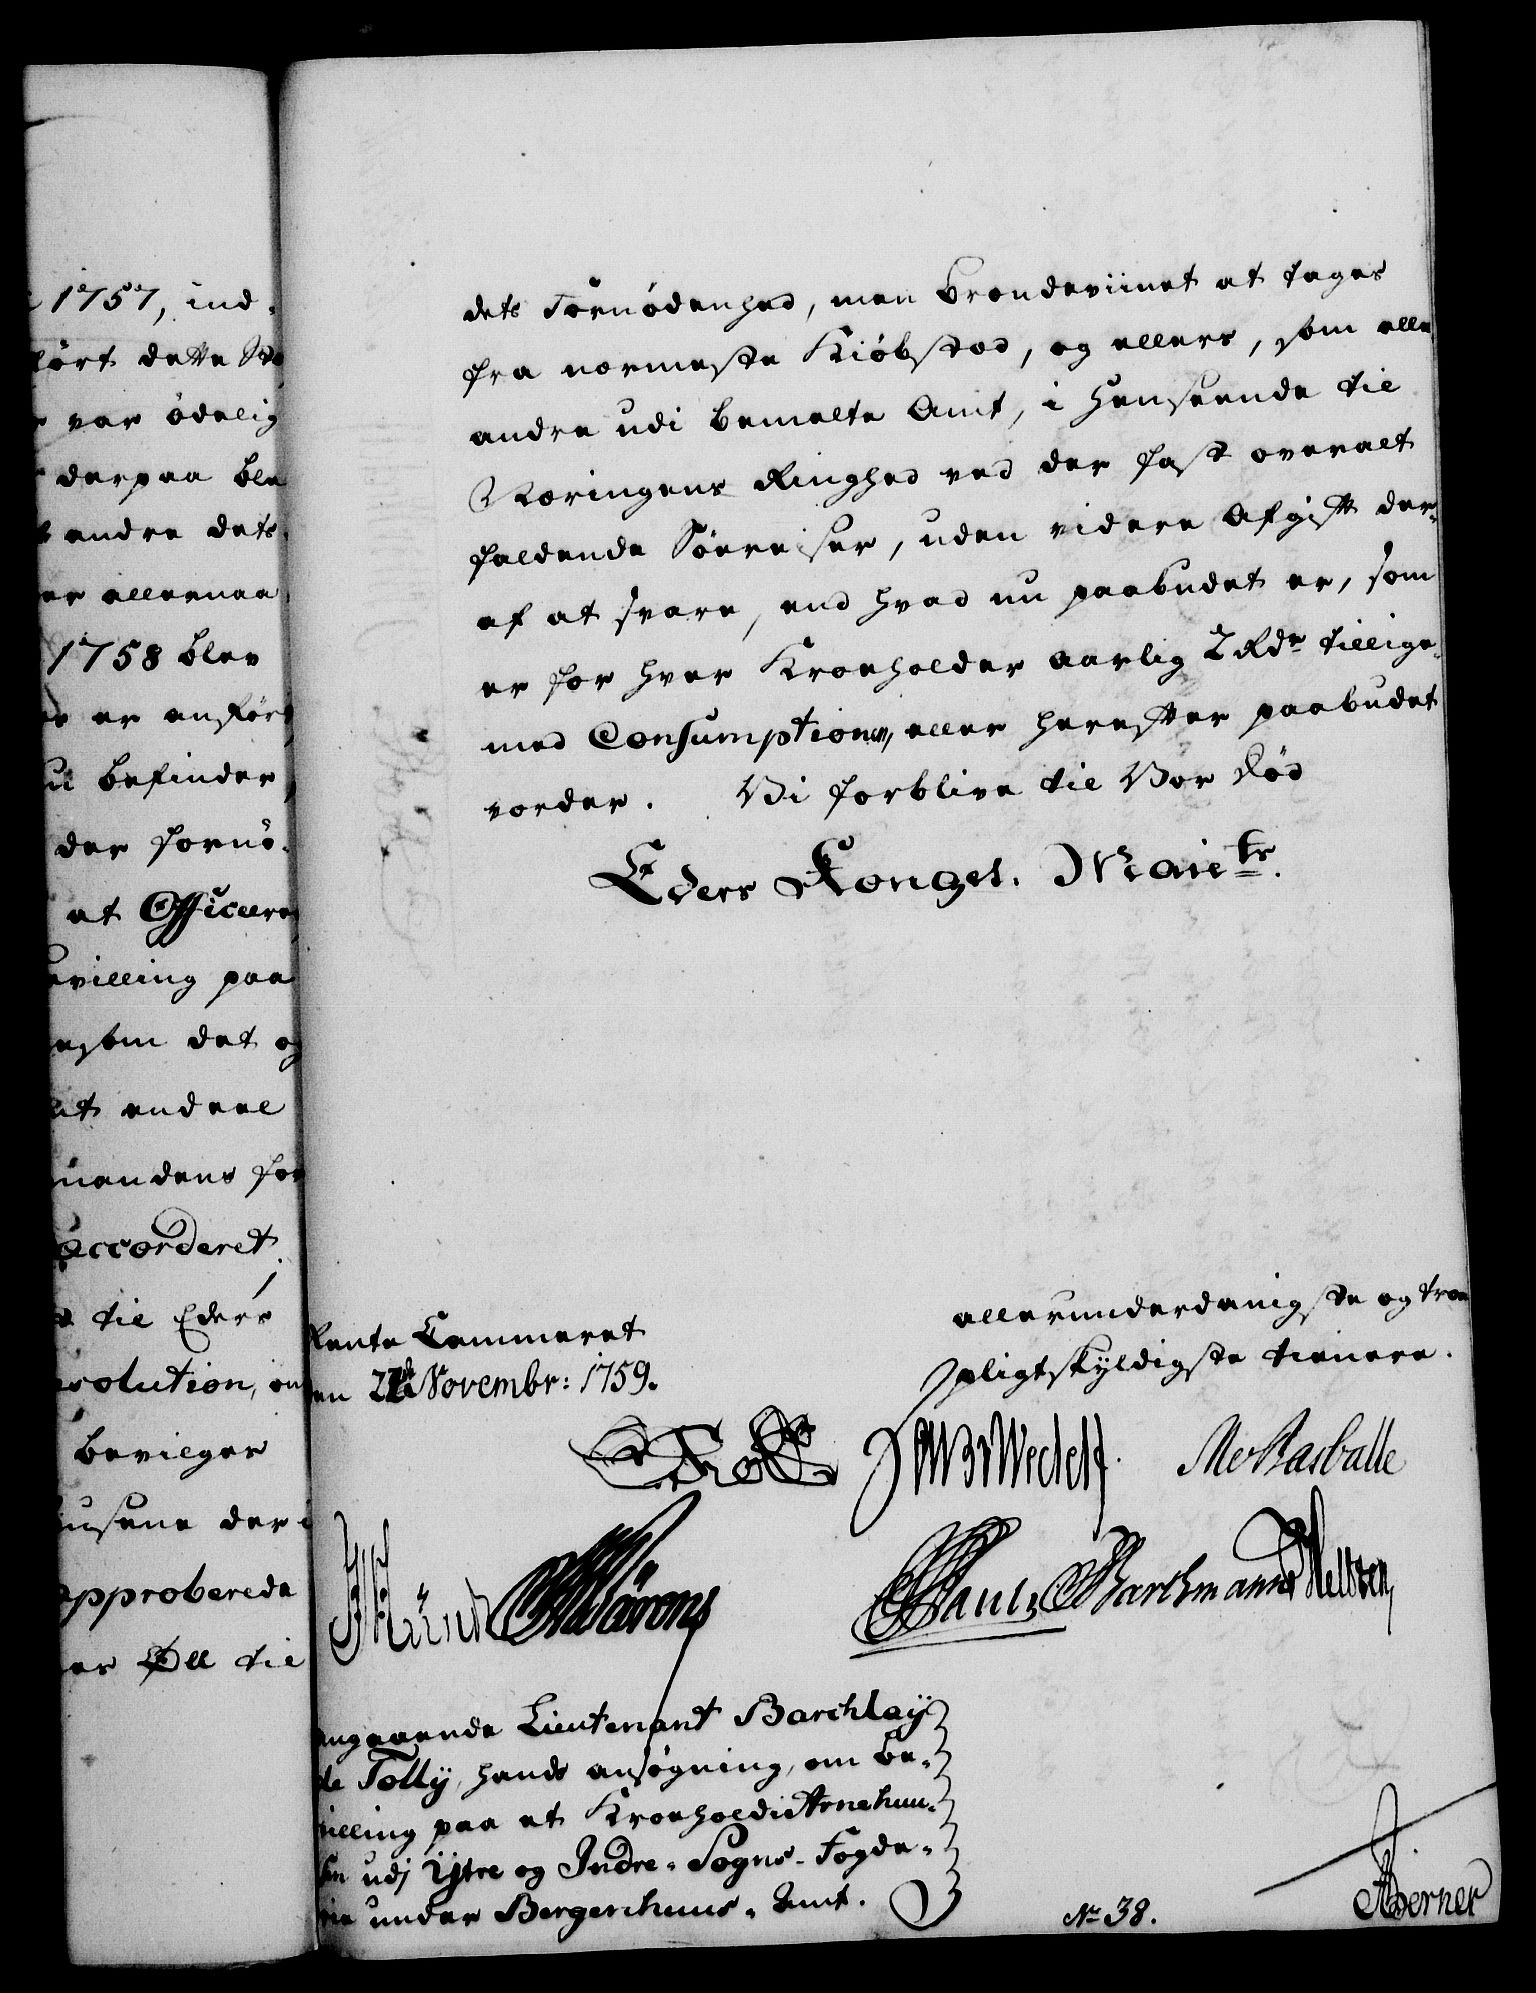 1757, ind-
ført dette
var ødelig
derpaa ble
andre dets
er alleenaa
1758 blev
er anført
befinder
der fornø-
at Officere
villing paa
som det og
andeel
mandens for
accorderet
til Eders
solution, om
bevilges
husene der i
approberede
Øll til
dets Fornødenhed, men Brændeviinet at tages
fra nærmeste Kiøbstæd, og ellers, som alle
andre udi bemelte Amt, i Henseende til
Næringens Ringhed ved der fast overalt
faldende Søereiser, uden videre Afgift der-
af at svare, end hvad nu paabudet er, som
er for hver Kroeholder aarlig 2 Rdr tillige-
med Consumptionen, eller herefter paabudet
vorder. Vi forblive til Vor Død
Eders Kongel. Maiets.
Rente Cammeret
den Novembr: 1759.
allerunderdanigste og troe
pligtskyldigste tienere.
angaaende Lieutenant Barchlaÿ
de Tollÿ, hands ansøgning, om be-
villing paa et Kroehold i Arnehuu-
sen udj Ÿtre og Indre-Sogns-Fogde-
rie under Bergenhuus-Amt.
No 38.